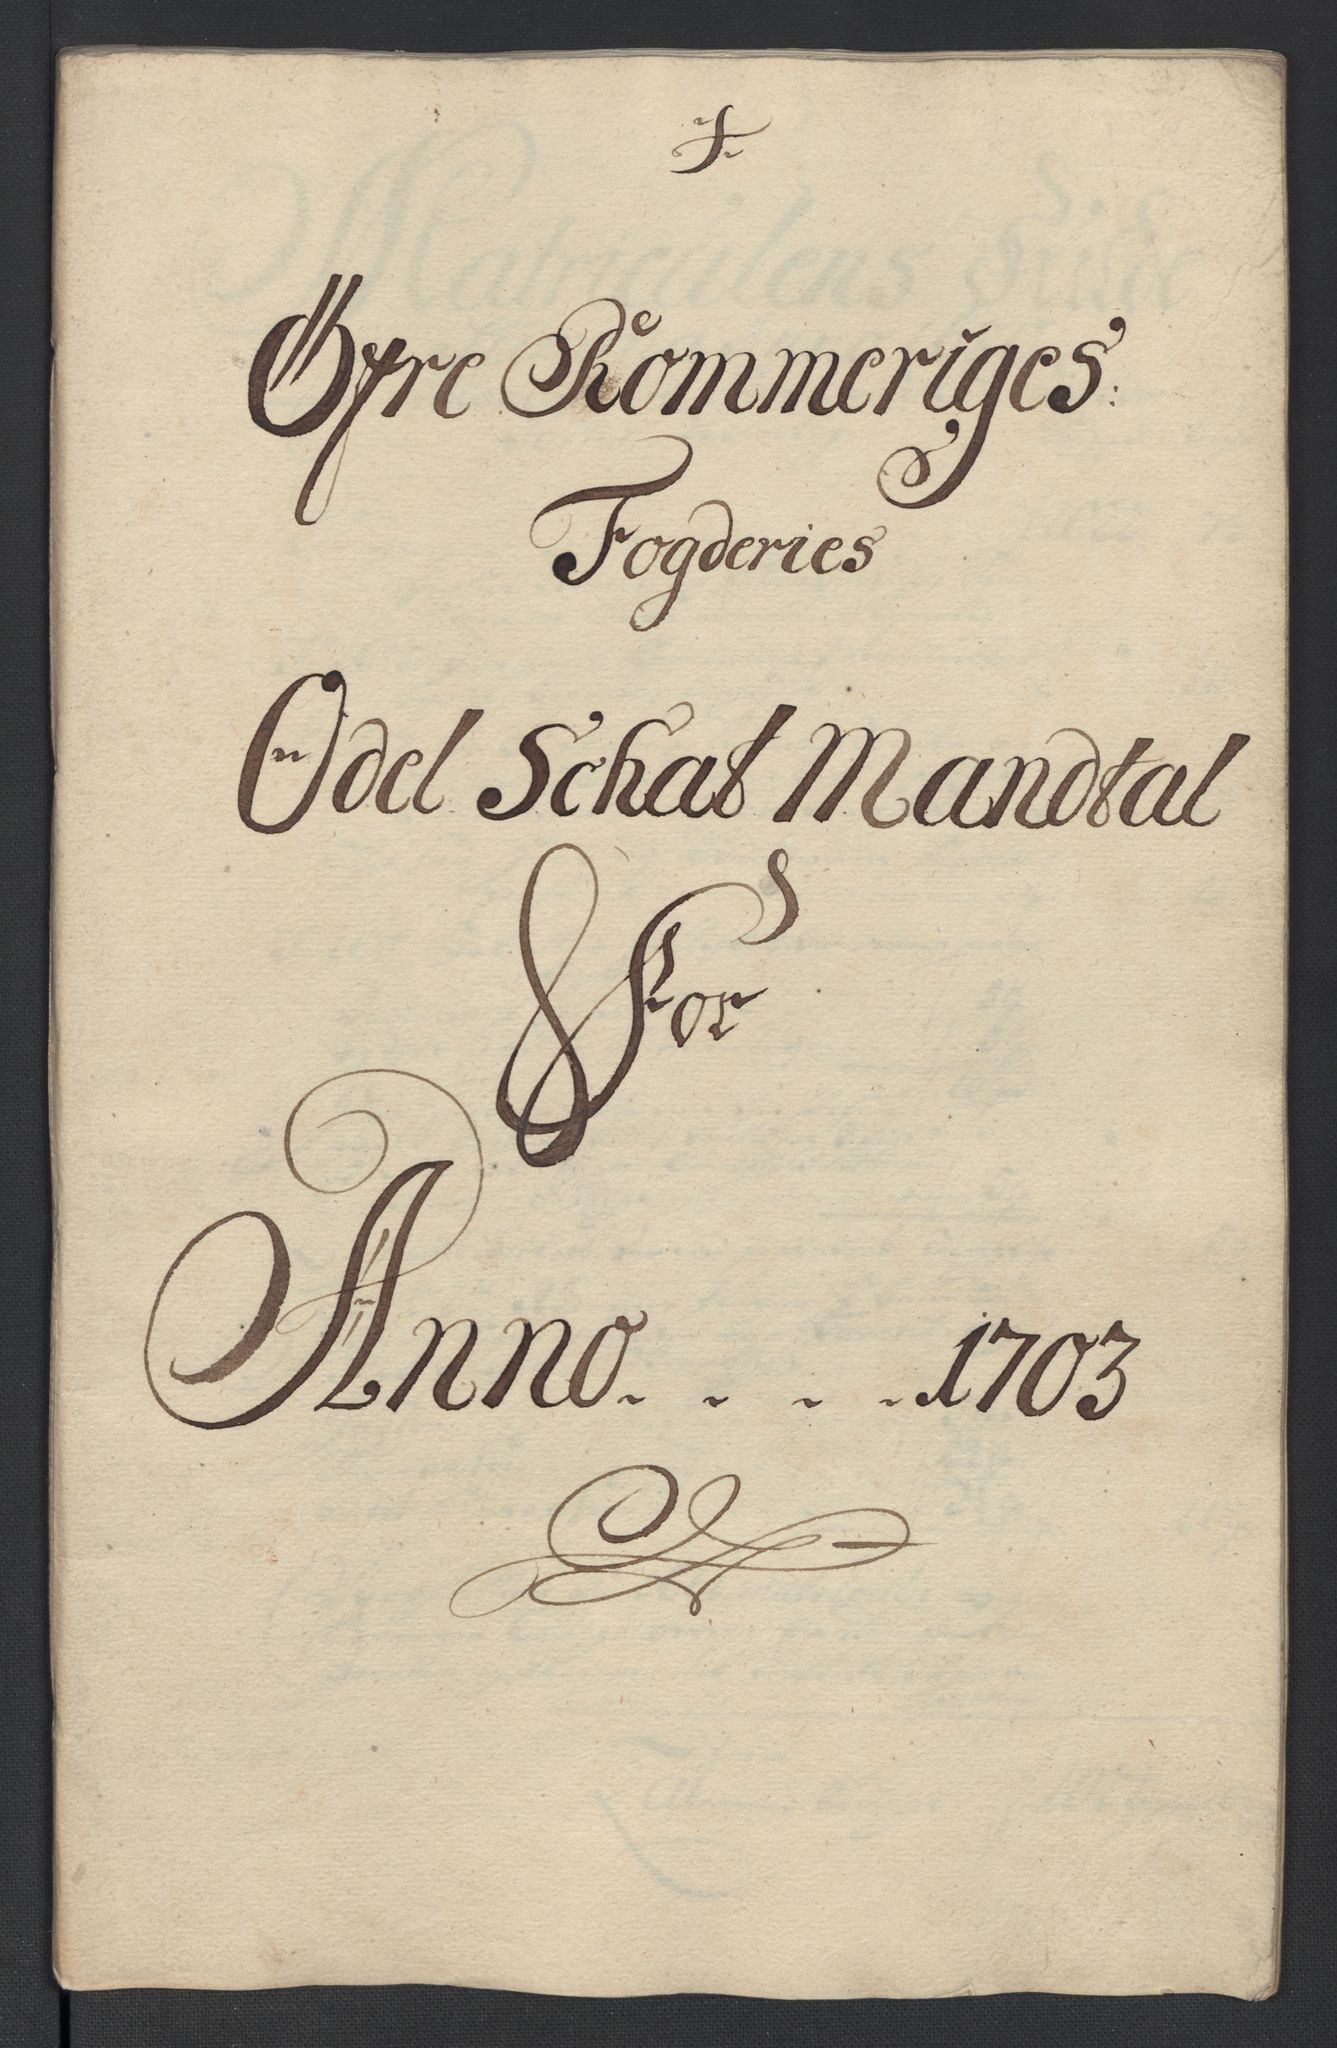 Öfre Rommeriges
Fogderies
Odel Schat Mandtal
For
Anno....1703